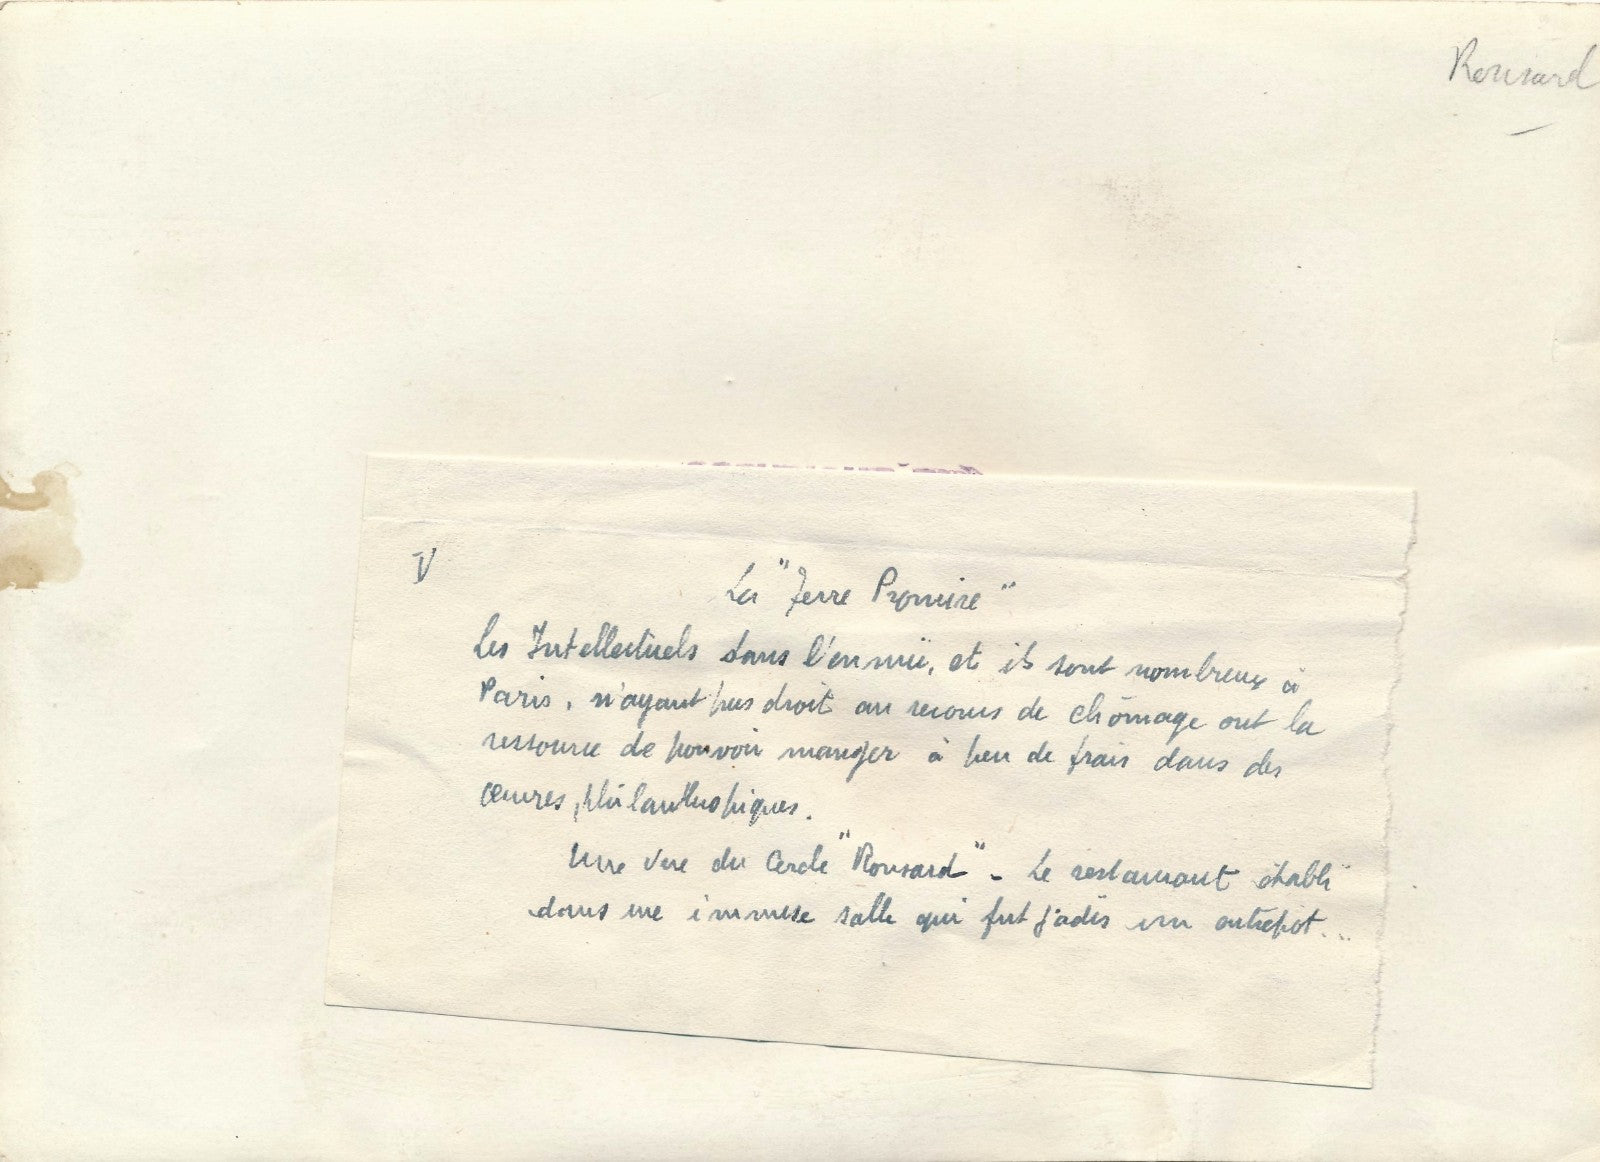 Ronsard
V
La "Terre Promise"
Les Intellectuels dans l'ennui, et ils sont nombreux à
Paris, n'ayant pas droit au secours de chômage ont la
ressource de pouvoir manger à peu de frais dans des
œuvres philanthropiques.
Une vue du Cercle "Ronsard" - Le restaurant établi
dans une immense salle qui fut jadis un entrepôt...